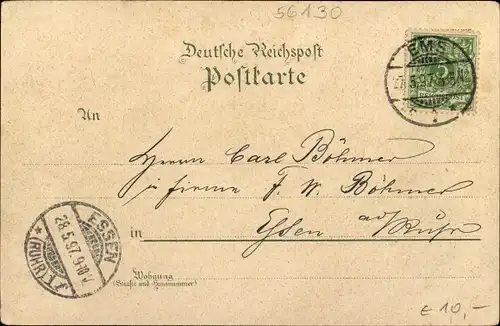 56130
Deutsche Reichspost
Postkarte
EMS
5 97
An
Herrn Carl Böhmer
in Firma F. W. Böhmer
in Essen a/d Ruhr
ESSEN
28.5.97.9-10
(RUHR)
Wohnung
(Straße und Hausnummer)
€ 10,-